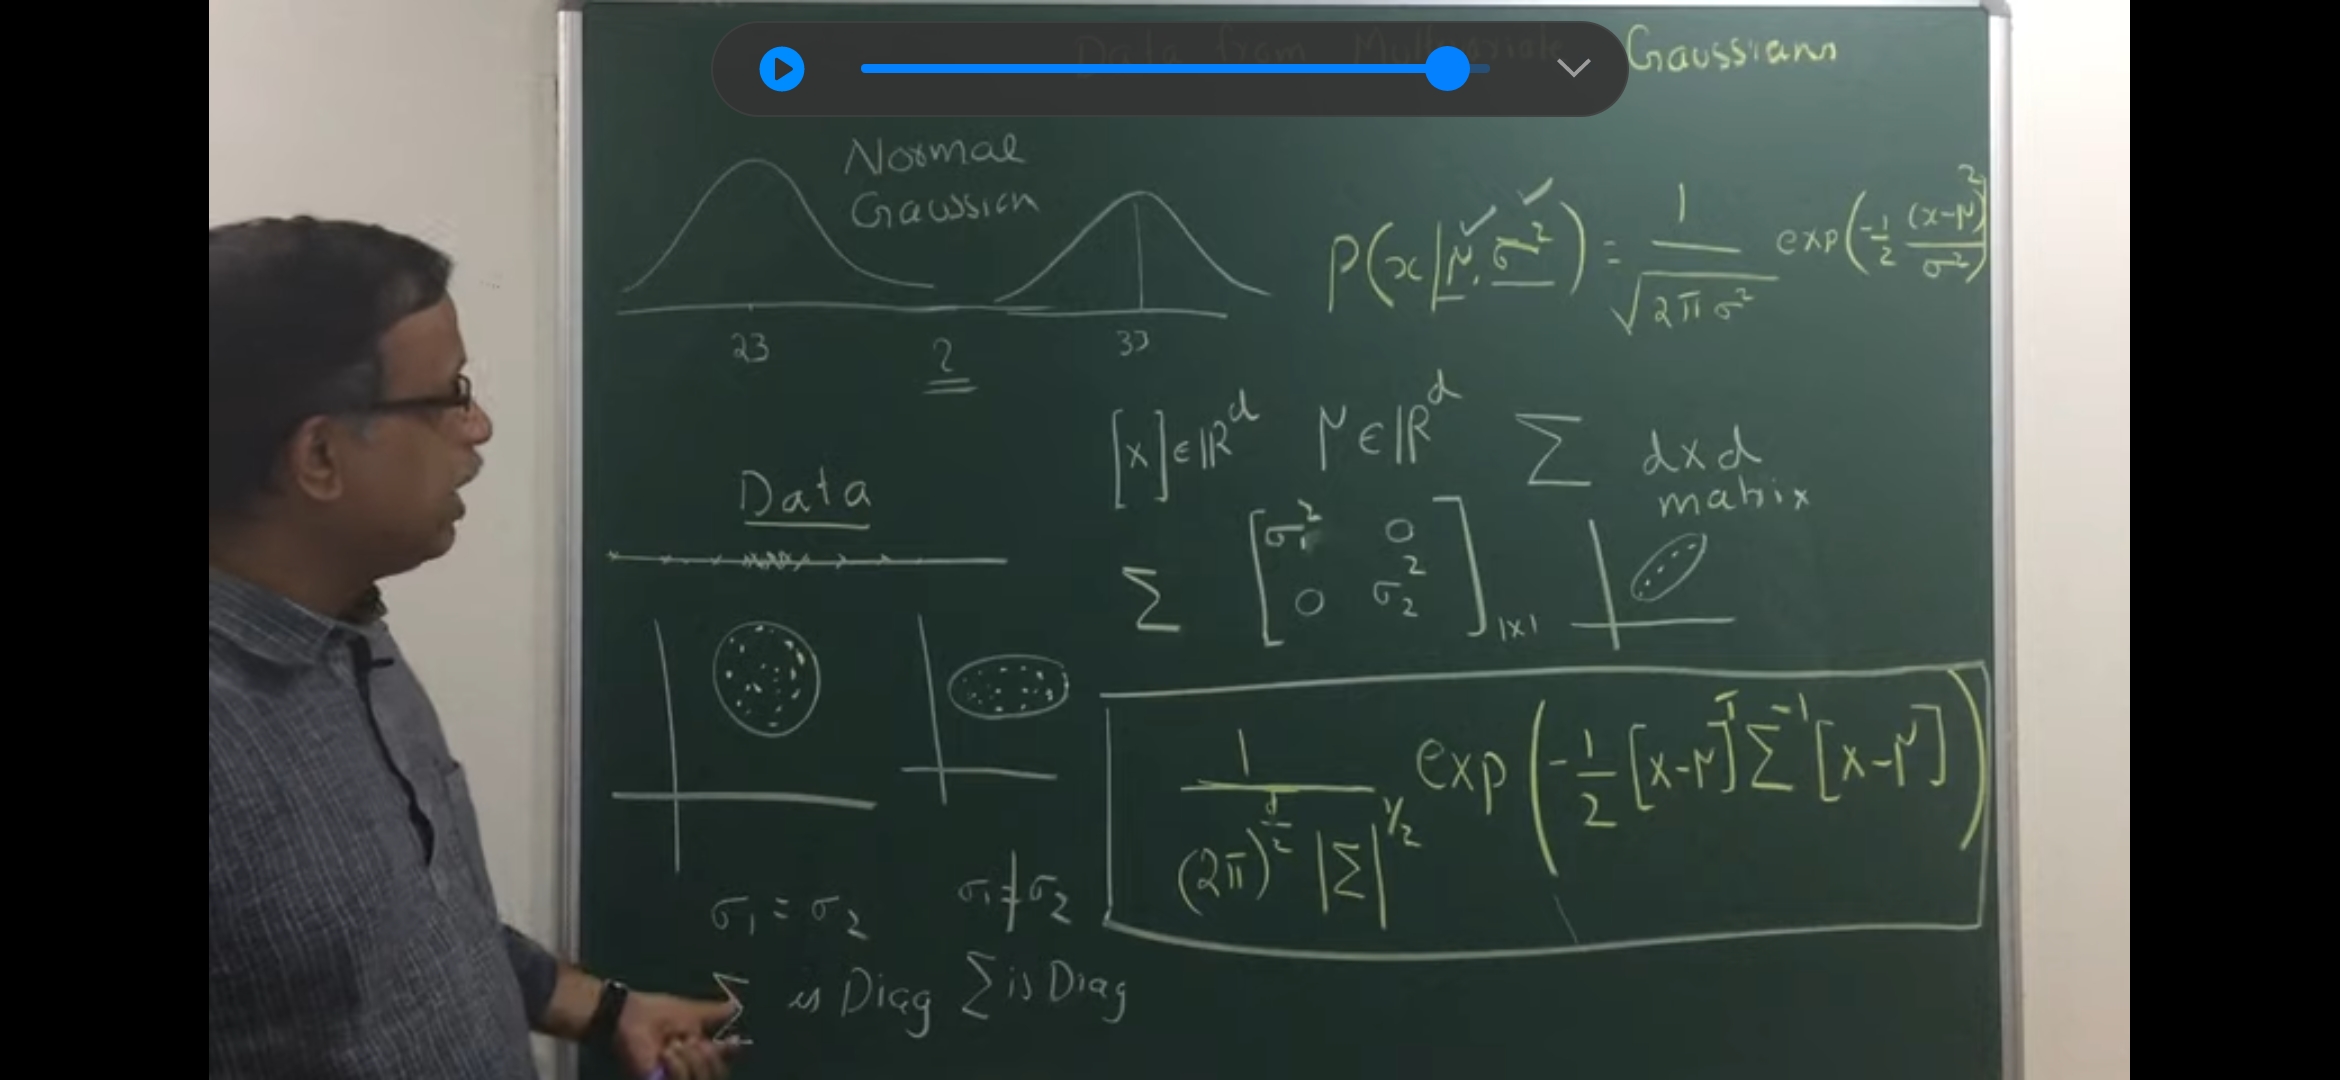 Data from Multivariate Gaussians
Normal
Gaussian
23
2
33
P(x|μ, σ²) = 1 / √(2πσ²) exp(-1/2 (x-μ)²/σ²)
[x] ∈ ℝ^d   μ ∈ ℝ^d   Σ   dxd
matrix
Data
Σ [σ₁² 0
0 σ₂²] 1x1
1 / ((2π)^(d/2) |Σ|^(1/2)) exp(-1/2 [x-μ]^T Σ^-1 [x-μ])
σ₁ = σ₂   σ₁ ≠ σ₂
Σ is Diag   Σ is Diag